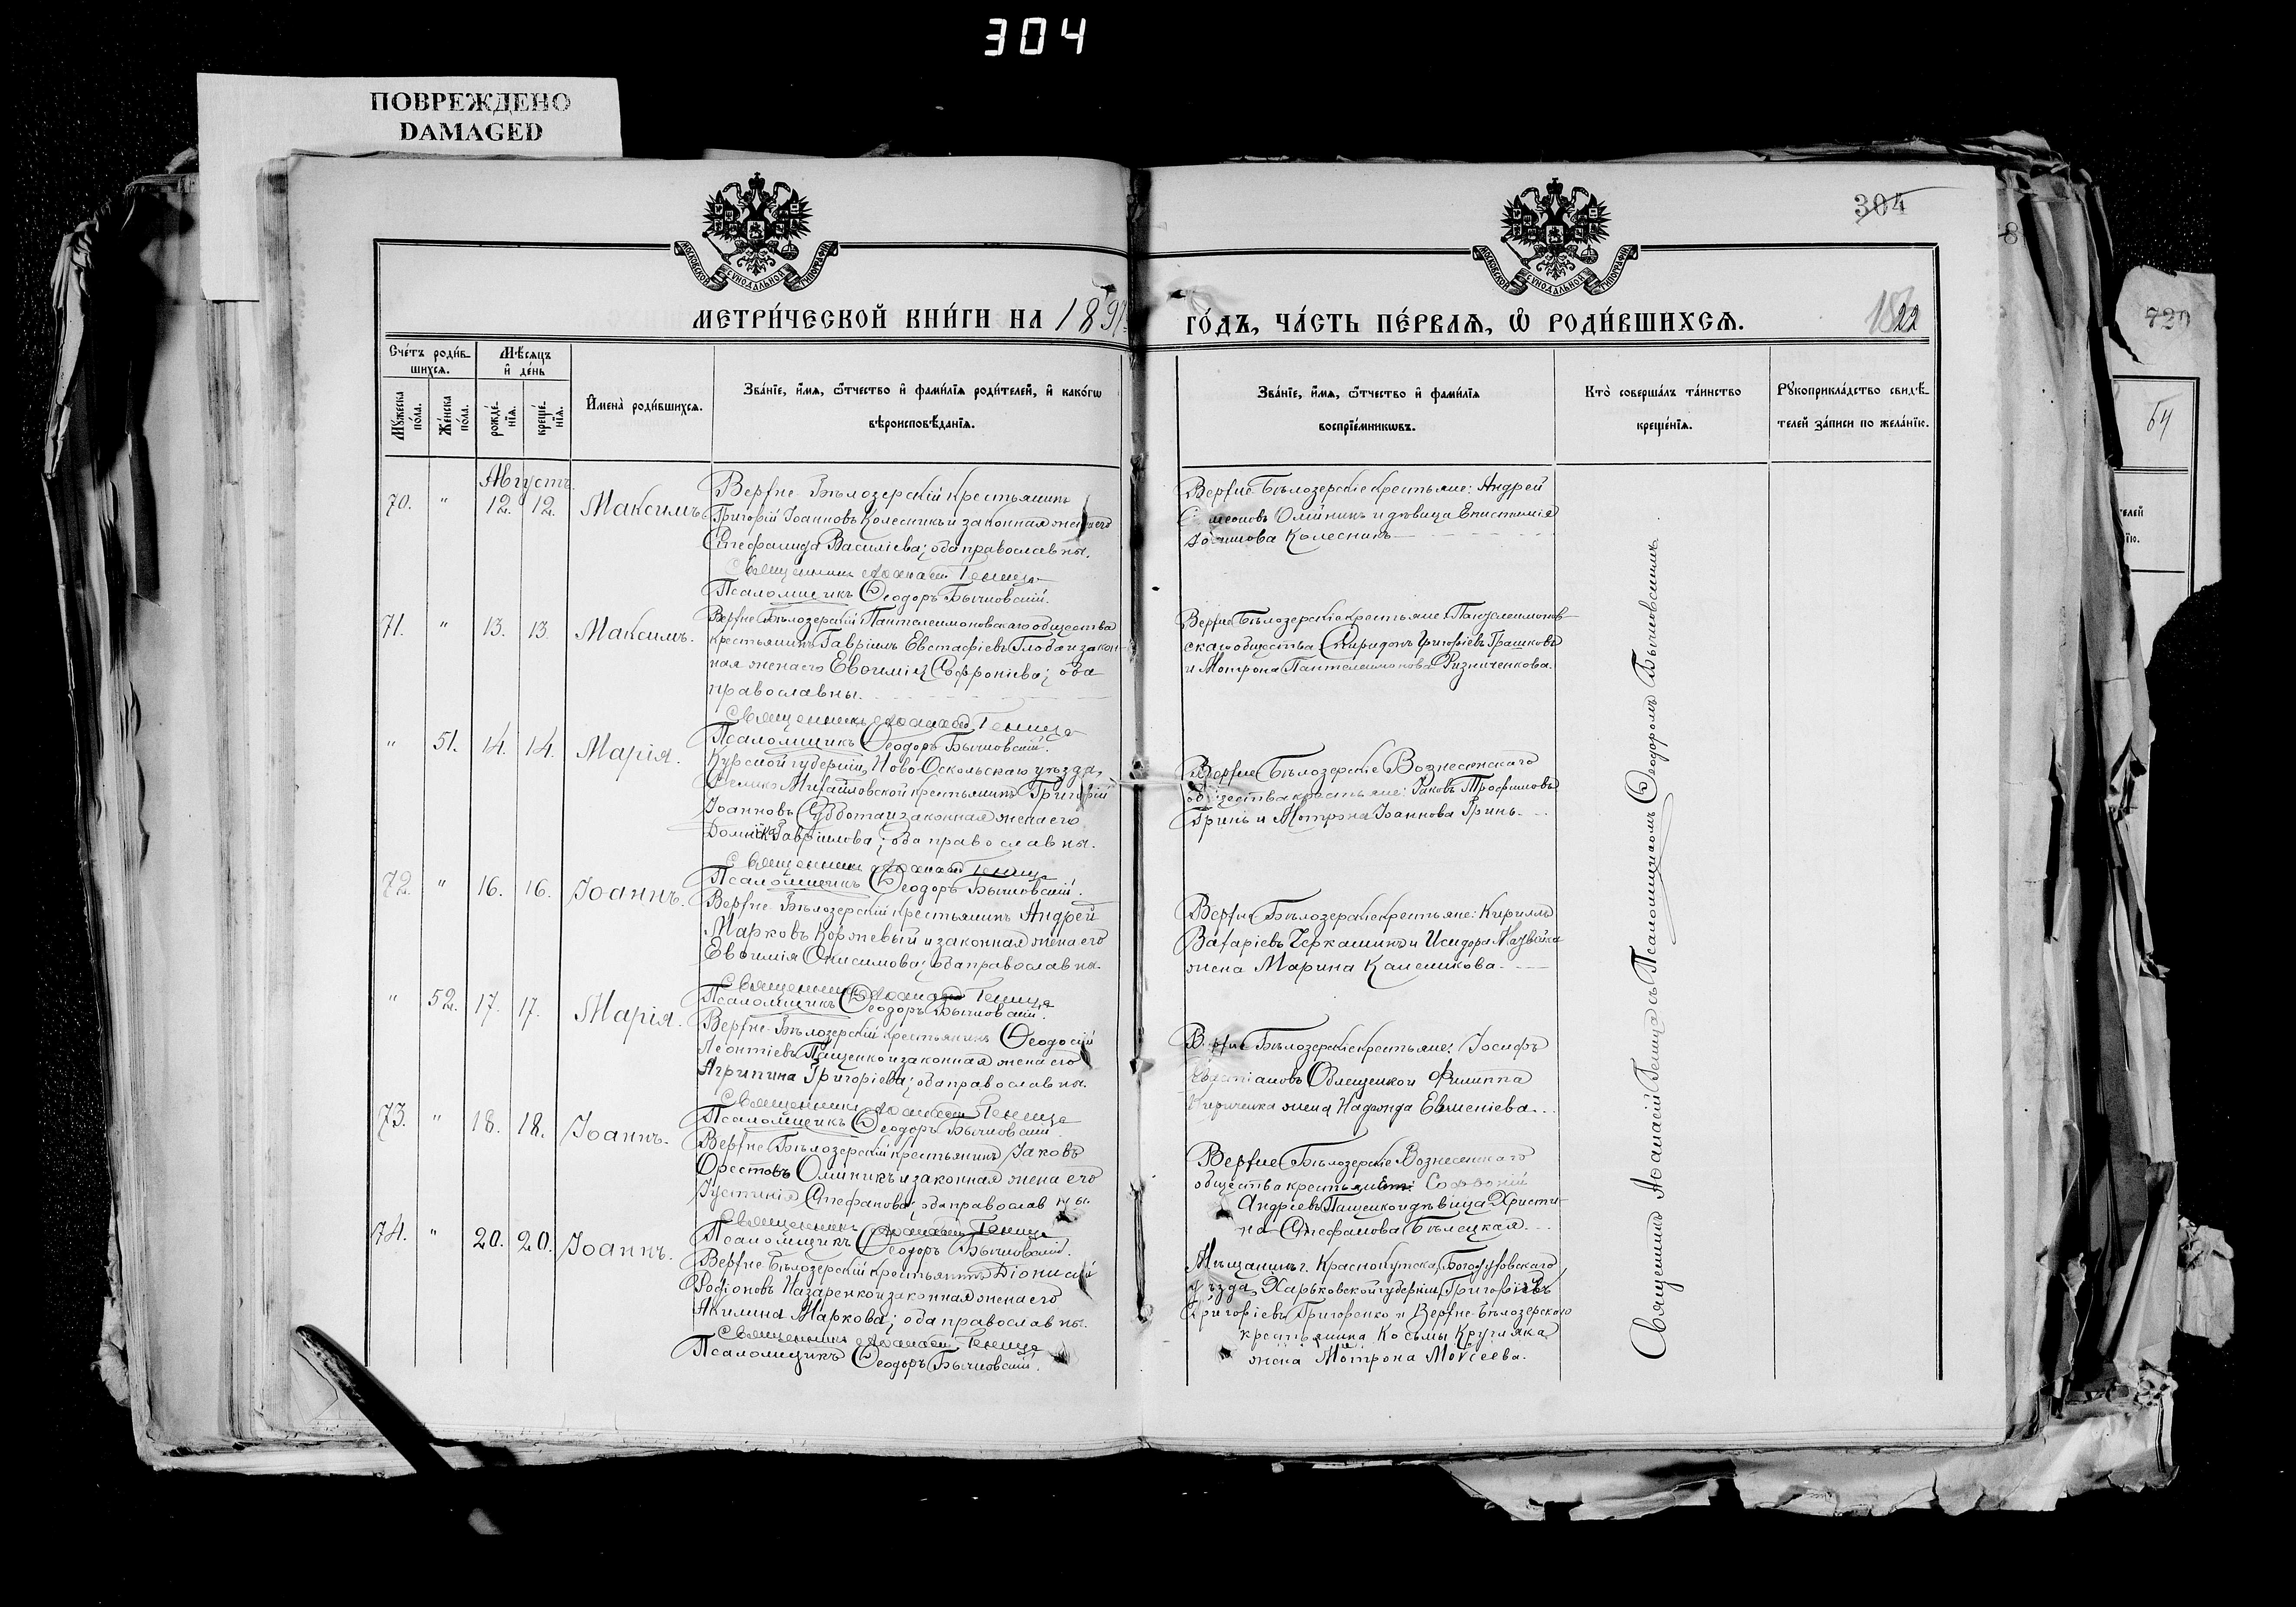 304
ПОВРЕЖДЕНО
DAMAGED
304
МОСКОВСКОЙ СУНОДАЛЬНОЙ ТИПОГРАФІИ
МОСКОВСКОЙ СУНОДАЛЬНОЙ ТИПОГРАФІИ
МЕТРИ́ЧЕСКОЙ КНИ́ГИ НА 1897
ГО́ДЪ, ЧА́СТЬ ПЕ́РВАЯ, Ѡ҆ РОДИ́ВШИХСЯ.
22
Сче́тъ роди́в-
шихся.
Мѣ́сяцъ
и҆ де́нь
Мꙋ́жеска по́ла.
Же́нска по́ла.
рожде́-
нїя.
креще́-
нїя.
И҆мена̀ роди́вшихся.
Зва́нїе, и҆́мя, ѻ҆́тчество и҆ фами́лїя роди́телей, и҆ како́гѡ
вѣроисповѣ́данїя.
Зва́нїе, и҆́мя, ѻ҆́тчество и҆ фами́лїя
воспрїе́мникѡвъ.
Кто̀ соверша́лъ та́инство
креще́нїя.
Рꙋкоприкла́дство свидѣ́-
телей за́писи по жела́нїю.
Августъ.
70. " 12. 12. Максимъ.
Верхне-Бѣлозерскій крестьянинъ
Григорій Іоанновъ Колесникъ и законная жена его
Стефанида Василіева; оба православны.
Священникъ Аѳанасій Геница
Псаломщикъ Ѳеодоръ Бычковскій.
Верхне-Бѣлозерскіе крестьяне: Андрей
Симеоновъ Олійникъ и дѣвица Епистимія
Колесникъ
71. " 13. 13. Максимъ.
Верхне-Бѣлозерскій Пантелеимоновскаго общества
крестьянинъ Гавріилъ Евстафіевъ Глоба и закон-
ная жена его Евѳимія Софроніева; оба
православны.
Священникъ Аѳанасій Геница
Псаломщикъ Ѳеодоръ Бычковскій.
Верхне-Бѣлозерскіе крестьяне Пантелеимонов-
скаго общества Спиридонъ Григоріевъ Грашковъ
и Мотрона Пантелеимонова Ризниченкова.
" 51. 14. 14. Марія.
Курской губерніи, Ново-Оскольскаго уѣзда,
Велико-Михайловской крестьянинъ Григорій
Іоанновъ Суббота и законная жена его
Гавріилова; оба православны.
Священникъ Аѳанасій Геница
Псаломщикъ Ѳеодоръ Бычковскій.
Верхне-Бѣлозерскіе Вознесенскаго
общества крестьяне: Іаковъ Трофимовъ
Гринь и Мотрона Іоаннова Гринь.
72. " 16. 16. Іоаннъ.
Верхне-Бѣлозерскій крестьянинъ Андрей
Марковъ Коржевый и законная жена его
Евѳимія Онисимова; оба православны.
Священникъ Аѳанасій Геница
Псаломщикъ Ѳеодоръ Бычковскій.
Верхне-Бѣлозерскіе крестьяне: Кириллъ
Захаріевъ Черкашинъ и Исидора
жена Марина Калешикова.
" 52. 17. 17. Марія.
Верхне-Бѣлозерскій крестьянинъ Ѳеодосій
Леонтіевъ Пащенко и законная жена его
Агрипина Григоріева; оба православны.
Священникъ Аѳанасій Геница
Псаломщикъ Ѳеодоръ Бычковскій.
Верхне-Бѣлозерскіе крестьяне: Іосифъ
и Филиппа
Кириченка жена Надежда Евменіева.
73. " 18. 18. Іоаннъ.
Верхне-Бѣлозерскій крестьянинъ Іаковъ
Орестовъ Олійникъ и законная жена его
Іустинія Стефанова; оба православны.
Священникъ Аѳанасій Геница
Псаломщикъ Ѳеодоръ Бычковскій.
Верхне-Бѣлозерскіе Вознесенскаго
общества крестьяне: Софроній
Андреевъ Пащенко и дѣвица Христи-
на Стефанова Бѣлецкая.
74. " 20. 20. Іоаннъ.
Верхне-Бѣлозерскій крестьянинъ Діонисій
Родіоновъ Назаренко и законная жена его
Акилина Маркова; оба православны.
Священникъ Аѳанасій Геница
Псаломщикъ Ѳеодоръ Бычковскій.
Мѣщанинъ г. Краснокутска, Богодуховскаго
уѣзда, Харьковской губерніи, Григорій
Григоріевъ Григоренко и Верхне-Бѣлозерскаго
крестьянина Косьмы Кругляка
жена Мотрона Моѵсеева.
Священникъ Аѳанасій Геница съ Псаломщикомъ Ѳеодоромъ Бычковскимъ.
720
64